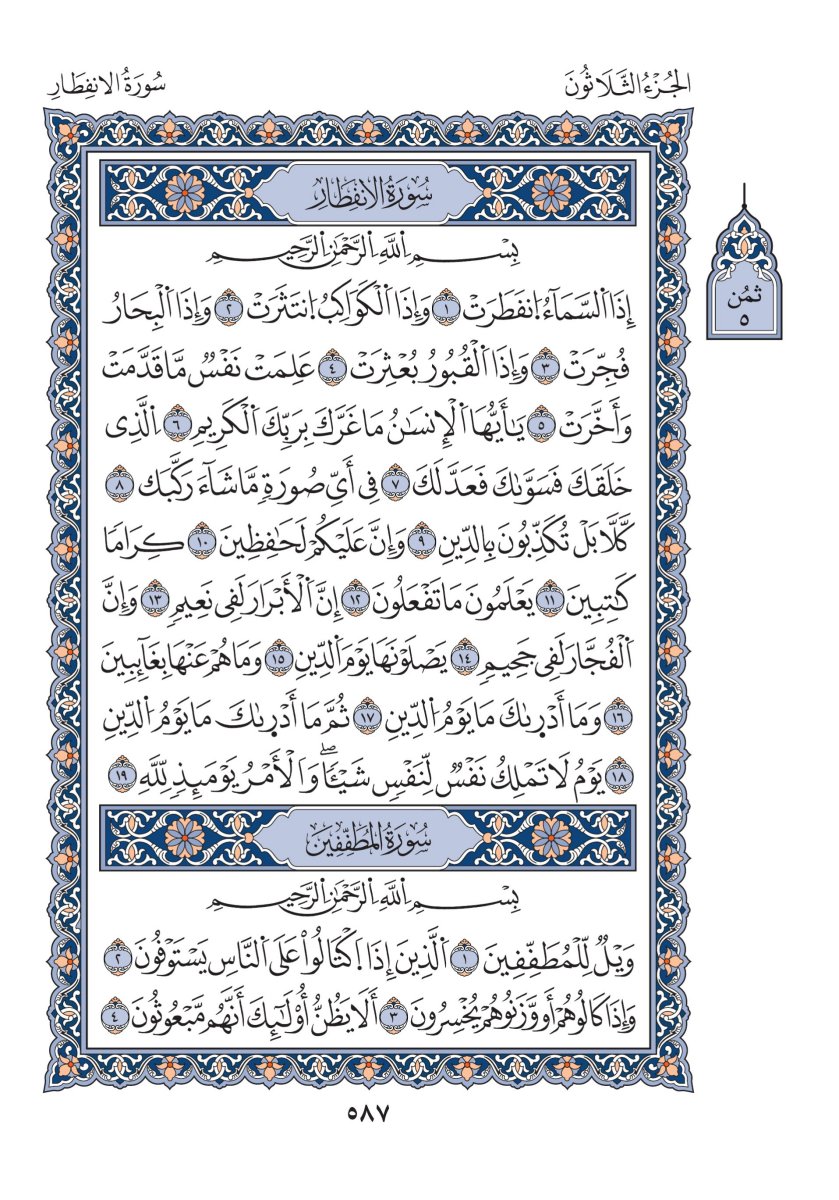 الجُزْءُ الثَّلَاثُونَ
سُورَةُ الانفِطَارِ
سُورَةُ الانفِطَارِ
ثُمُن
٥
بِسْمِ اللَّهِ الرَّحْمَٰنِ الرَّحِيمِ
إِذَا اَلسَّمَآءُ اُنفَطَرَتْ ١ وَإِذَا اَلْكَوَاكِبُ اُنتَثَرَتْ ٢ وَإِذَا اَلْبِحَارُ
فُجِّرَتْ ٣ وَإِذَا اَلْقُبُورُ بُعْثِرَتْ ٤ عَلِمَتْ نَفْسٌ مَّا قَدَّمَتْ
وَأَخَّرَتْ ٥ يَٰأَيُّهَا اَلْإِنسَٰنُ مَا غَرَّكَ بِرَبِّكَ اَلْكَرِيمِ ٦ اِلَّذِى
خَلَقَكَ فَسَوَّىٰكَ فَعَدَّلَكَ ٧ فِى أَىِّ صُورَةٍ مَّا شَآءَ رَكَّبَكَ ٨
كَلَّا بَلْ تُكَذِّبُونَ بِالدِّينِ ٩ وَإِنَّ عَلَيْكُمْ لَحَٰفِظِينَ ١٠ كِرَامًا
كَٰتِبِينَ ١١ يَعْلَمُونَ مَا تَفْعَلُونَ ١٢ إِنَّ اَلْأَبْرَارَ لَفِى نَعِيمٍ ١٣ وَإِنَّ
اَلْفُجَّارَ لَفِى جَحِيمٍ ١٤ يَصْلَوْنَهَا يَوْمَ اَلدِّينِ ١٥ وَمَا هُمْ عَنْهَا بِغَآئِبِينَ
١٦ وَمَا أَدْرِىٰكَ مَا يَوْمُ اُلدِّينِ ١٧ ثُمَّ مَا أَدْرِىٰكَ مَا يَوْمُ اُلدِّينِ
١٨ يَوْمُ لَا تَمْلِكُ نَفْسٌ لِّنَفْسٍ شَيْـًٔاۖ وَاَلْأَمْرُ يَوْمَئِذٍ لِّلَّهِ ١٩
سُورَةُ المُطَفِّفِينَ
بِسْمِ اللَّهِ الرَّحْمَٰنِ الرَّحِيمِ
وَيْلٌ لِّلْمُطَفِّفِينَ ١ اَلَّذِينَ إِذَا اَكْتَالُواْ عَلَى اَلنَّاسِ يَسْتَوْفُونَ ٢
وَإِذَا كَالُوهُمْ أَو وَّزَنُوهُمْ يُخْسِرُونَ ٣ أَلَا يَظُنُّ أُوْلَٰٓئِكَ أَنَّهُم مَّبْعُوثُونَ ٤
٥٨٧